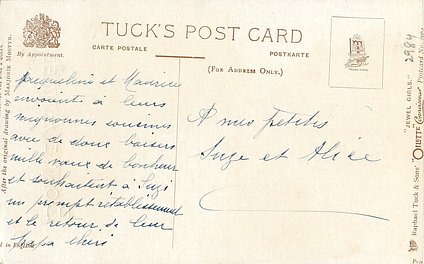 TUCK'S POST CARD
CARTE POSTALE
POSTKARTE
(FOR ADDRESS ONLY.)
By Appointment.
TRADE MARK
2984
Jacqueline et Maurice
envoient à leurs
mignonnes cousines
avec de doux baisers
mille vœux de bonheur
et souhaitent à Suzi
un prompt rétablissement
et le retour de leur
Papa chéri
A mes petites
Suze et Alice
After the original drawing by Marjorie Mostyn.
"JEWEL GIRLS."
Raphael Tuck & Sons' "OILETTE" Connoisseur Postcard No.